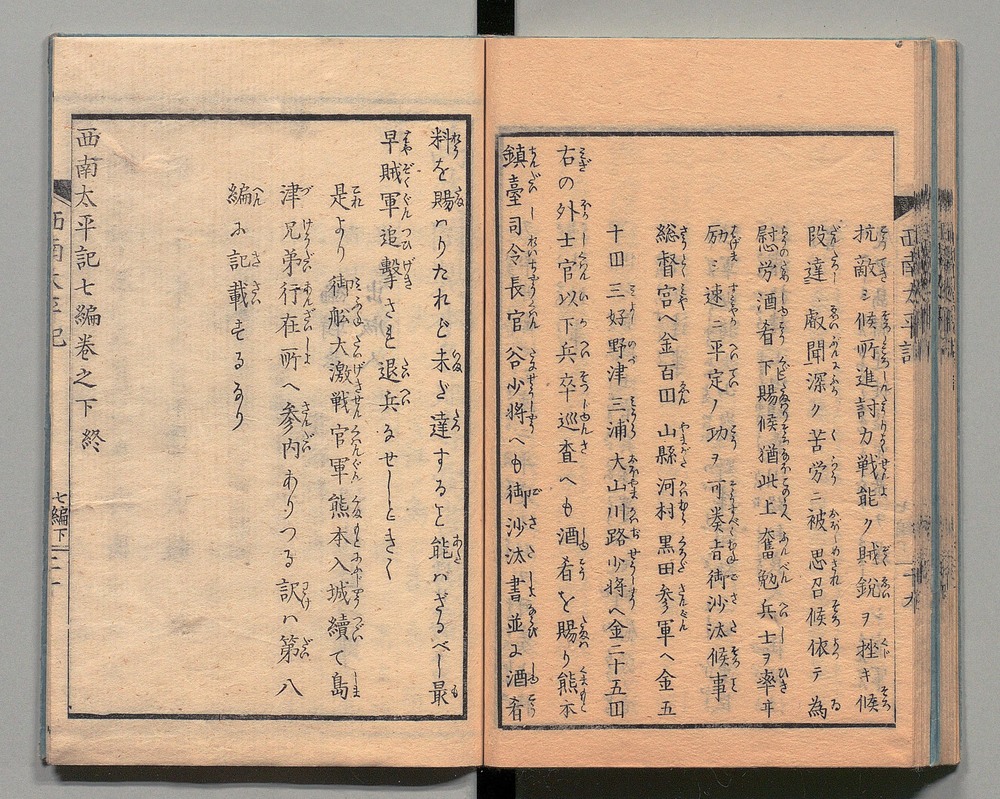 抗敵シ候所進討力戦能ク賊鋭ヲ挫キ候
段達 叡聞深ク苦労ニ被 思召候依テ為
慰労酒肴下賜候猶此上奮勉兵士ヲ率ヰ
励 速ニ平定ノ功ヲ可奏旨御沙汰候事
総督宮ヘ金百円 山縣河村黒田参軍ヘ金五
十円 三好野津三浦大山川路少将ヘ金二十五円
右の外士官以下兵卒巡査へも酒肴を賜り熊本
鎮臺司令長官 谷少将へも御沙汰書並に酒肴
料を賜ハりたれど未ど達すると能ハざるべし最
早賊軍追撃さへ退兵なせしときく
是より 御舩大激戦官軍熊本入城續て島
津兄弟行在所へ参内ありつる訳ハ第八
編に記載するなり
西南太平記七編巻之下 終
西南太平記
七編下